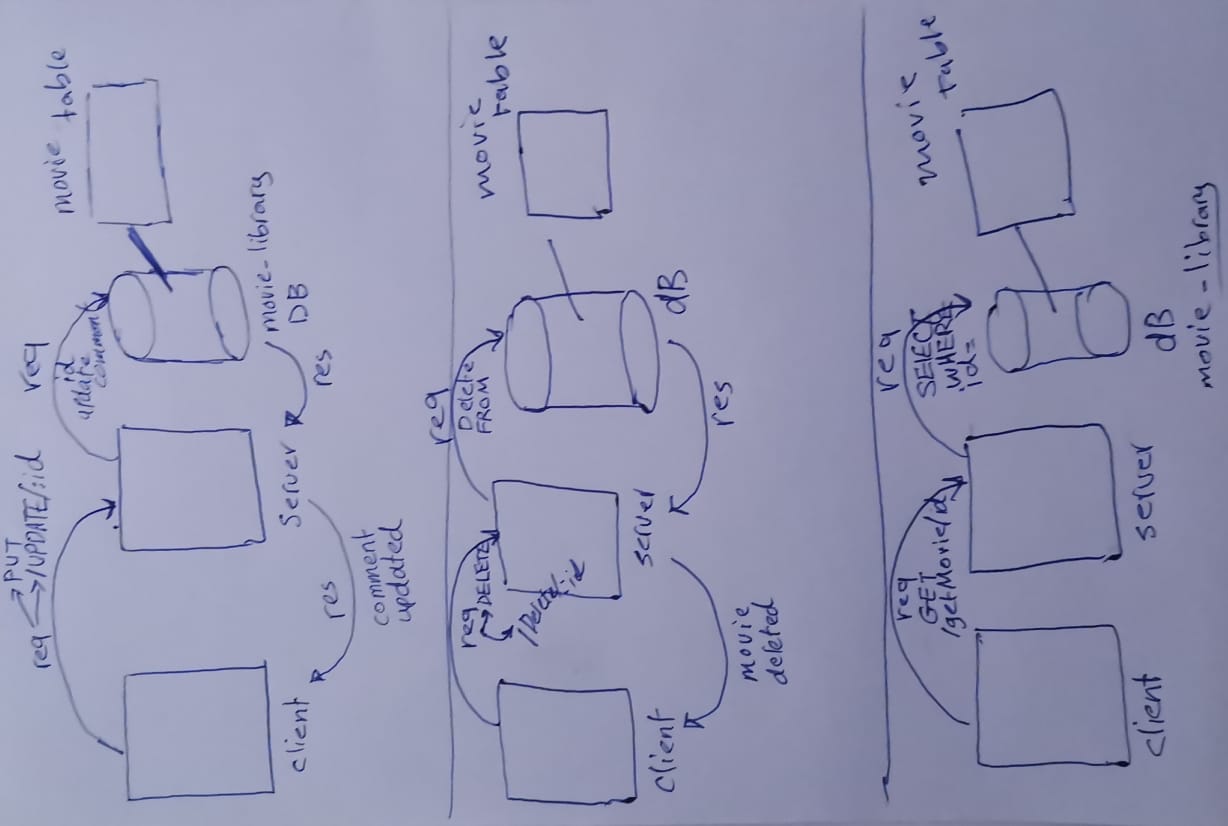 PUT
req /UPDATE/:id
req
id
update
common
movie table
client
server
movie-library
DB
res
res
comment
updated
req
DELETE
/Delete/:id
req
Delete
FROM
movie
table
client
server
dB
res
movie
deleted
req
GET
/getMovie/id
req
SElECT
WHERE
id=
movie
table
client
server
dB
movie-library